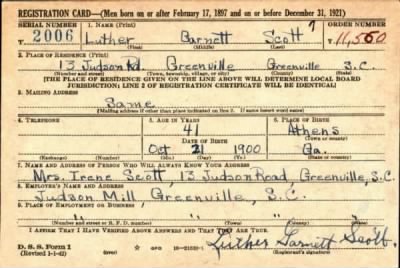 REGISTRATION CARD—(Men born on or after February 17, 1897 and on or before December 31, 1921)
SERIAL NUMBER 1. NAME (Print) ORDER NUMBER
2006 Luther Garnett Scott T 11,560
(First) (Middle) (Last)
2. PLACE OF RESIDENCE (Print)
13 Judson Rd. Greenville Greenville S.C.
(Number and street) (Town, township, village, or city) (County) (State)
[THE PLACE OF RESIDENCE GIVEN ON THE LINE ABOVE WILL DETERMINE LOCAL BOARD
JURISDICTION; LINE 2 OF REGISTRATION CERTIFICATE WILL BE IDENTICAL]
3. MAILING ADDRESS
Same
[Mailing address if other than place indicated on line 2. If same insert word same]
4. TELEPHONE 5. AGE IN YEARS 6. PLACE OF BIRTH
41 Athens
DATE OF BIRTH (Town or county)
Oct 21 1900 Ga.
(Exchange) (Number) (Mo.) (Day) (Yr.) (State or country)
7. NAME AND ADDRESS OF PERSON WHO WILL ALWAYS KNOW YOUR ADDRESS
Mrs. Irene Scott, 13 Judson Road, Greenville, S.C.
8. EMPLOYER'S NAME AND ADDRESS
Judson Mill Greenville, S.C.
9. PLACE OF EMPLOYMENT OR BUSINESS
" " " "
(Number and street or R. F. D. number) (Town) (County) (State)
I AFFIRM THAT I HAVE VERIFIED ABOVE ANSWERS AND THAT THEY ARE TRUE.
D. S. S. Form 1
(Revised 1-1-42) (over) 16—21630-1 Luther Garnett Scott
(Registrant's signature)